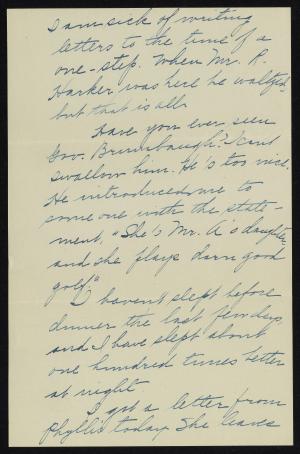 I am sick of writing
letters to the time of a
one-step. When Mr. R.
Harker was here he waltzed,
but that is all.
Have you ever seen
Gov. Brumbaugh? I can't
swallow him. He's too nice.
He introduced me to
some one with the state-
ment, "She's Mr. A's daughter
and she plays darn good
golf."
I haven't slept before
dinner the last few days
and I have slept about
one hundred times better
at night
I got a letter from
Phyllis today. She leaves